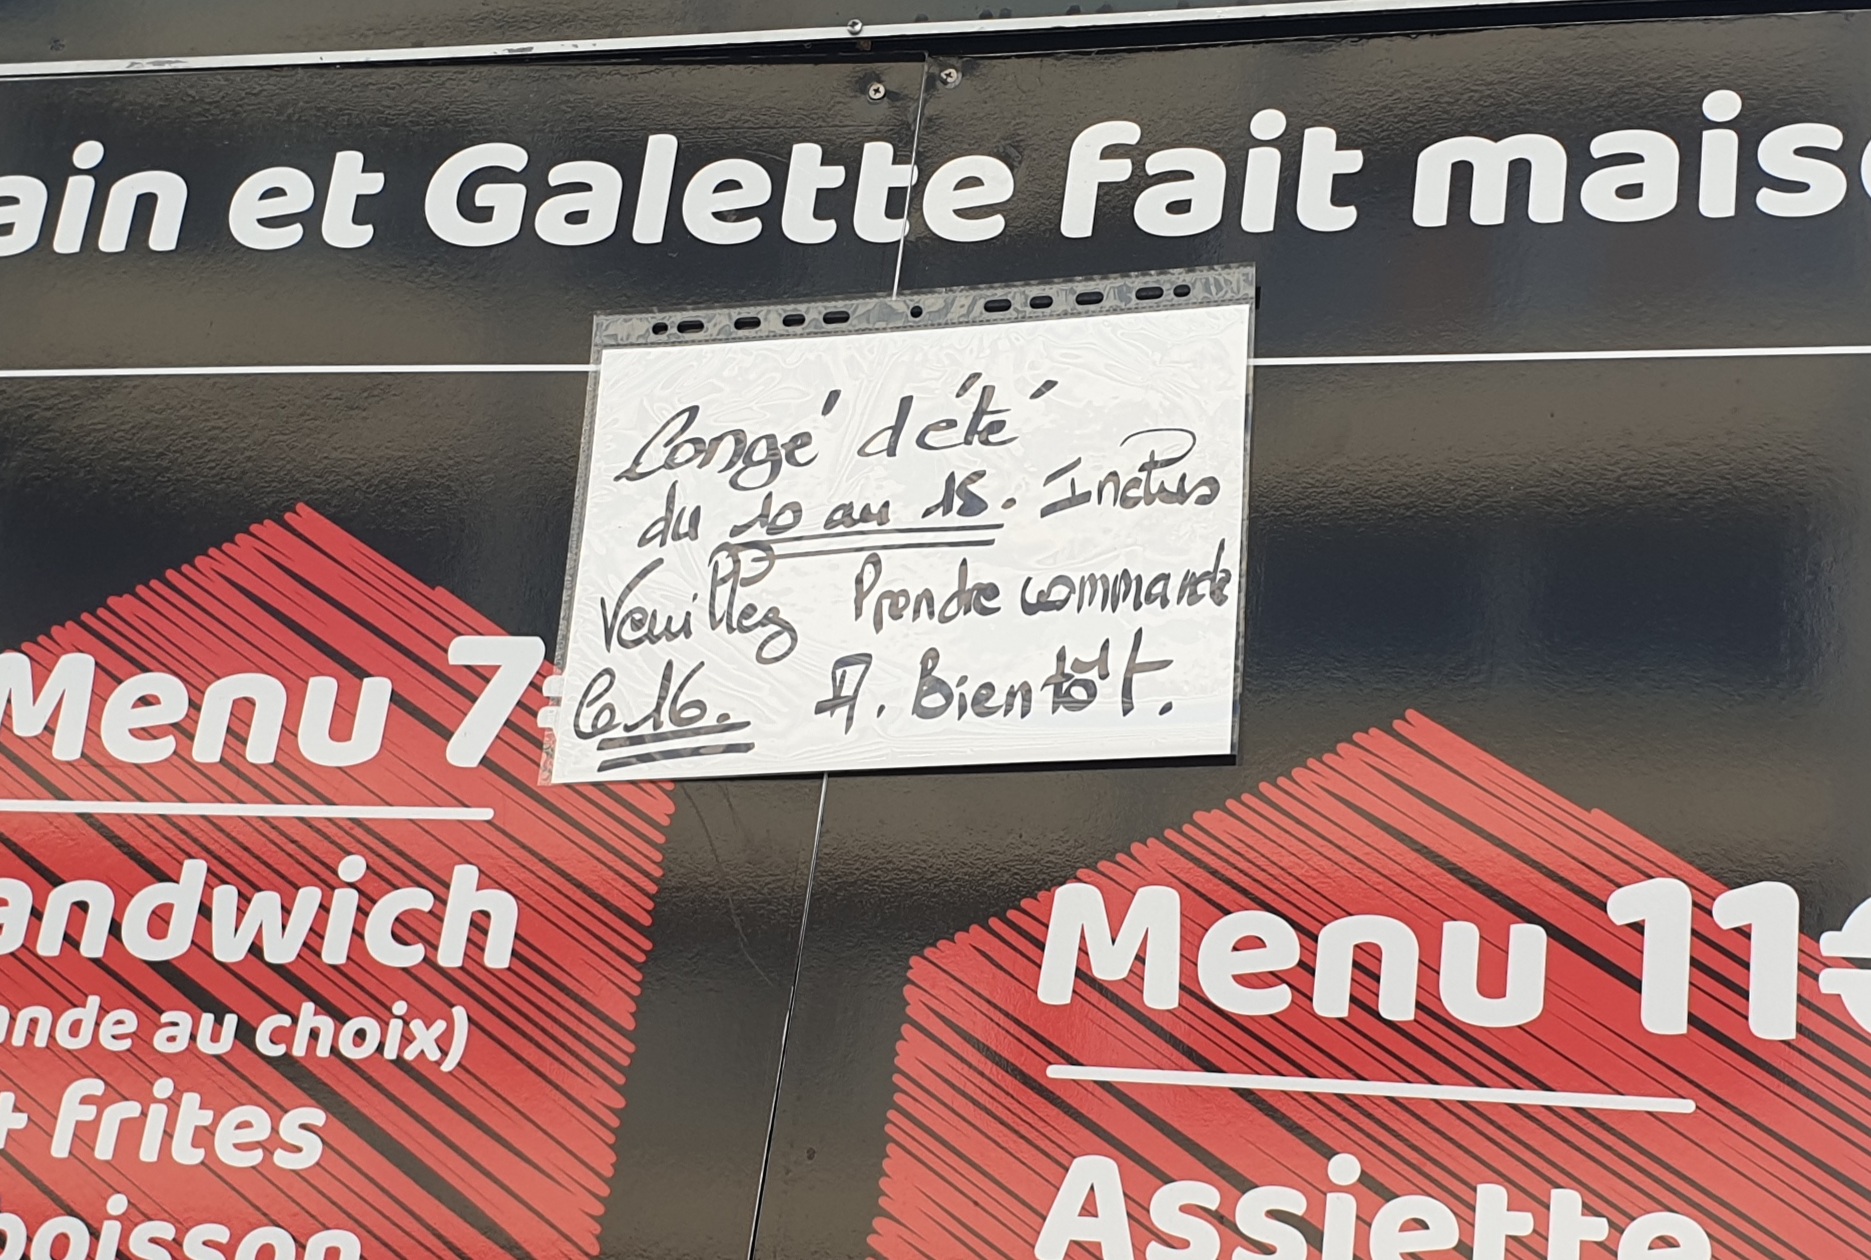 ain et Galette fait mais
Congé d'été
du 10 au 15. Inclus
Veuillez Prendre commande
le 16. A. Bientôt.
Menu 7€
andwich
ande au choix)
+ frites
boisson
Menu 11€
Assiette